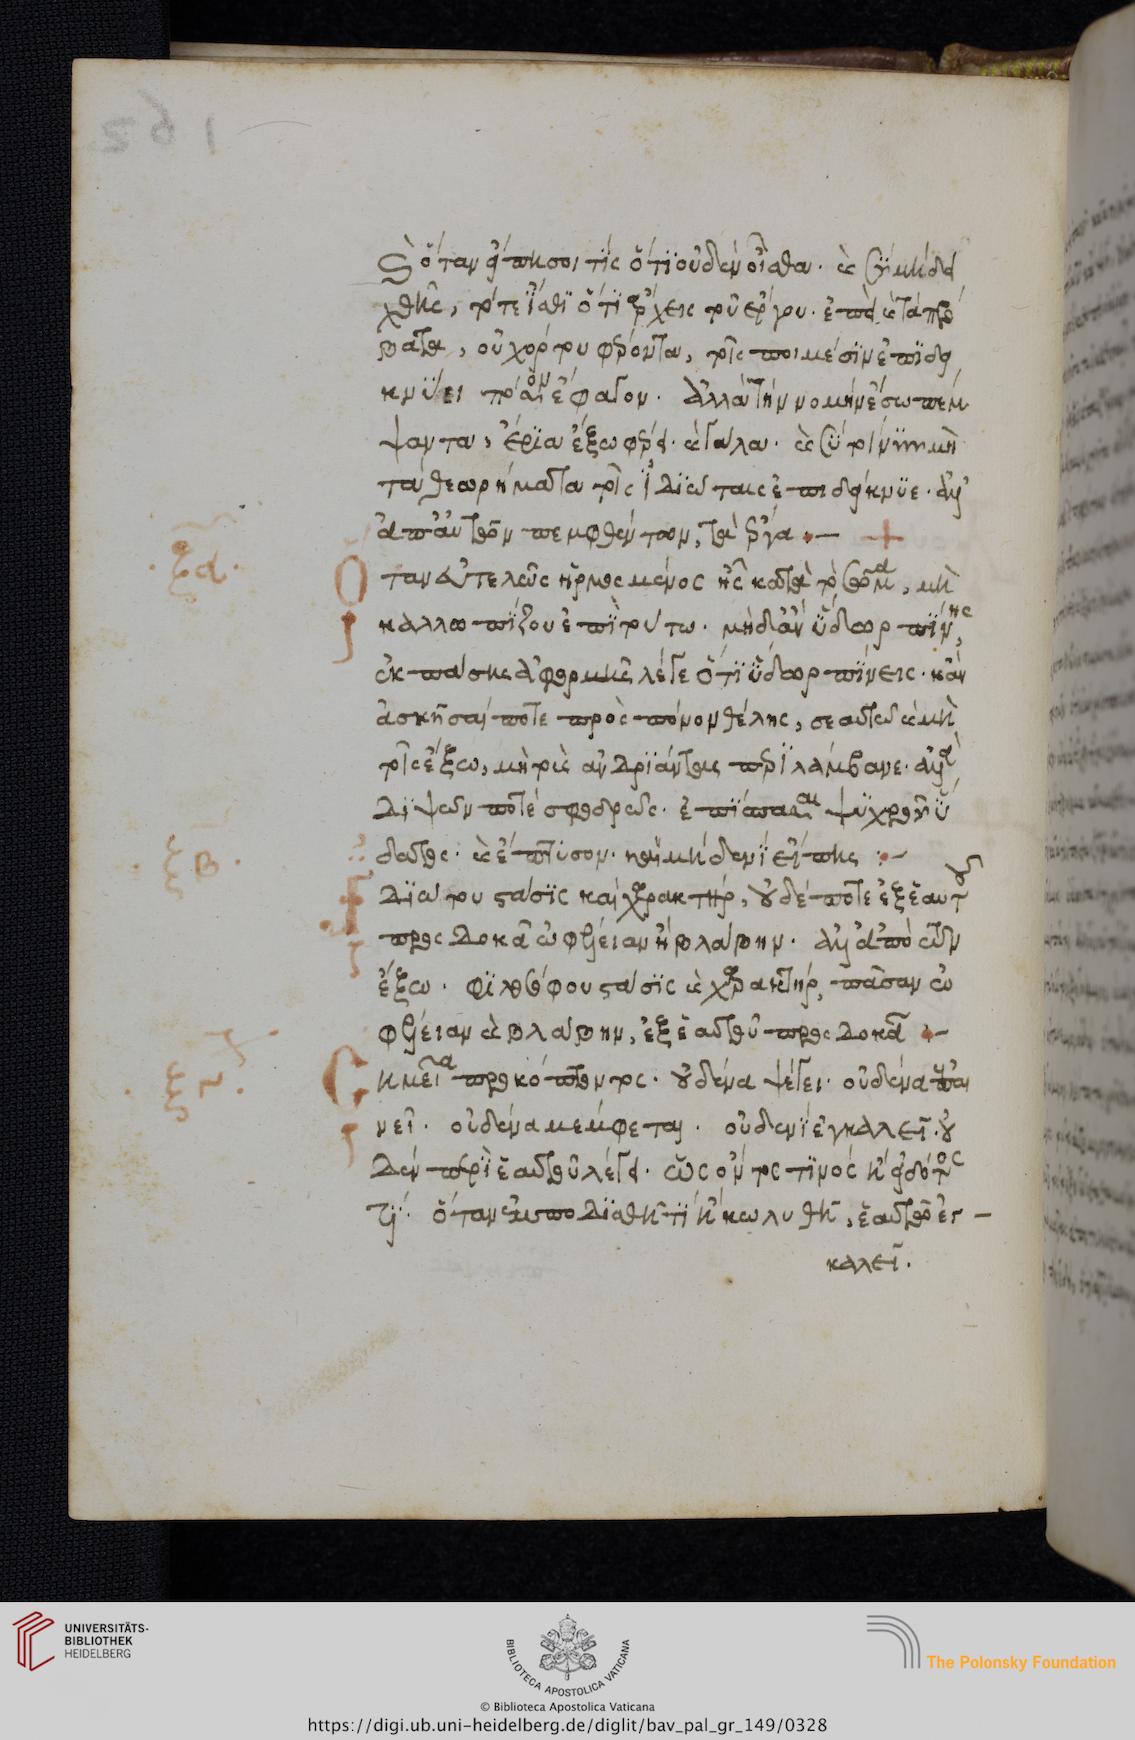 καὶ ὅταν εἴπη σοι τίς ὅτι οὐδὲν οἶσθα· καὶ σὺ μὴ δη
χθῆς, τότε ἴσθι ὅτι ἄρχεις τοῦ ἔργου· ἐπεὶ καὶ τὰ πρό
βατα, οὐ χόρτον φέροντα, τοῖς ποιμέσιν ἐπιδει
κνύει πόσον ἔφαγον. ἀλλὰ τὴν νομὴν ἔσω πέμ
ψαντα, ἔρια ἔξω φέρει καὶ γάλα· καὶ σὺ τοίνυν μὴ
τὰ θεωρήματα τοῖς ἰδιώταις ἐπιδείκνυε· ἀλλ'
ἀπ' αὐτῶν πεμφθέντων, τὰ ἔργα
ξα
Ὅταν εὐτελῶς ἡρμοσμένος ᾖς κατὰ τὸ σῶμα, μὴ
καλλωπίζου ἐπὶ τούτω· μηδ' ἂν ὕδωρ πίνης,
ἐκ πάσης ἀφορμῆς λέγε ὅτι ὕδωρ πίνεις· κἂν
ἀσκῆσαί ποτε πρὸς πόνον θέλης, σεαυτῶ καὶ μὴ
τοῖς ἔξω, μὴ τοὺς ἀνδριάντας περιλάμβανε· ἀλλὰ
διψῶν ποτὲ σφοδρῶς· ἐπίσπασαι ψυχροῦ ὕ
δατος· καὶ ἔκπτυσον· καὶ μηδενὶ εἴπης
ξβ
Ἰδιώτου στάσις καὶ χαρακτήρ, οὐδέποτε ἐξ ἑαυτοῦ
προσδοκᾶ ὠφέλειαν ἢ βλάβην· ἀλλ' ἀπὸ τῶν
ἔξω· φιλοσόφου στάσις καὶ χαρακτήρ, πᾶσαν ὠ
φέλειαν καὶ βλάβην, ἐξ ἑαυτοῦ προσδοκᾶ
ξγ
Σημεῖα προκόπτοντος· οὐδένα ψέγει· οὐδένα ἐπαι
νεῖ· οὐδένα μέμφεται· οὐδενὶ ἐγκαλεῖ· οὐ
δὲν περὶ ἑαυτοῦ λέγει· ὡς ὄντος τινὸς ἢ εἰδότος
τι· ὅταν ἐμποδισθῆ τι ἢ κωλυθῆ, ἑαυτῶ ἐγ
καλεῖ.
UNIVERSITÄTS-
BIBLIOTHEK
HEIDELBERG
BIBLIOTECA APOSTOLICA VATICANA
The Polonsky Foundation
© Biblioteca Apostolica Vaticana
https://digi.ub.uni-heidelberg.de/diglit/bav_pal_gr_149/0328